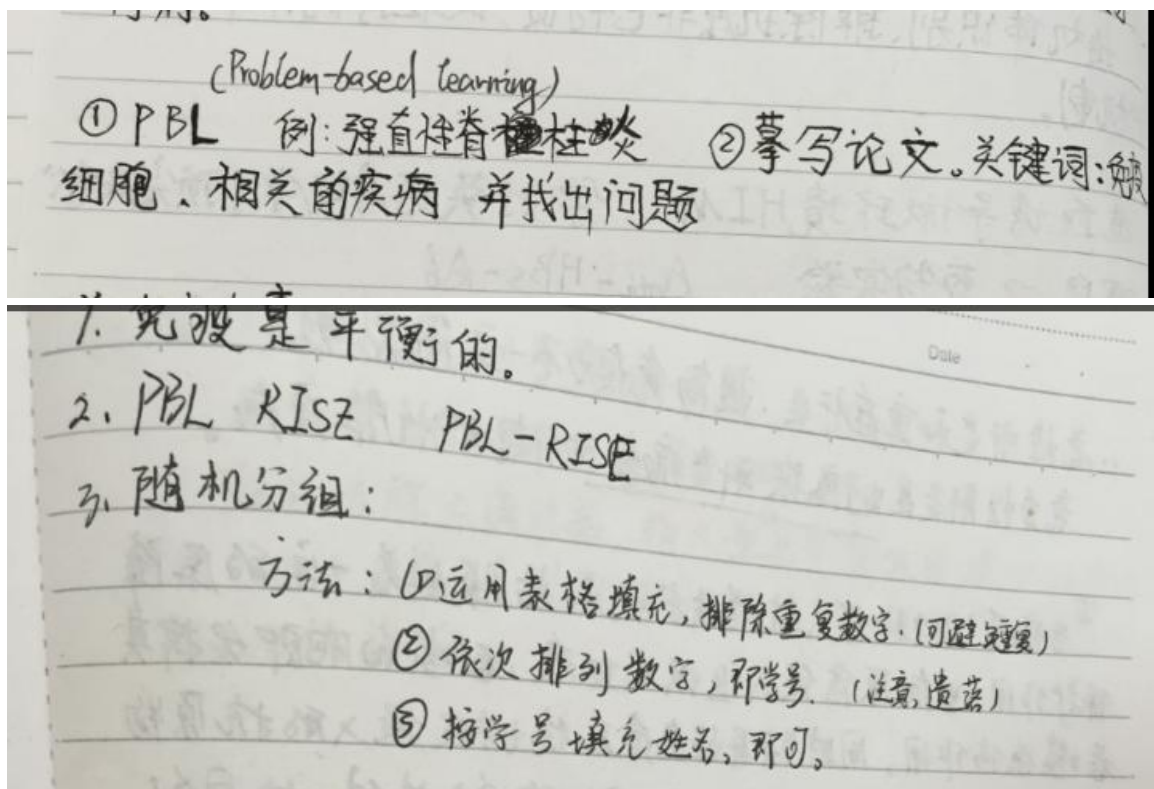 (Problem-based learning)
① PBL 例:强直性脊柱炎 ②摹写论文。关键词:
细胞、相关的疾病 并找出问题
1. 免疫是平衡的。
Date
2. PBL RISE PBL-RISE
3. 随机分组:
方法:①运用表格填充,排除重复数字.(回避重复)
②依次排列数字,即学号.(注意遗落)
③按学号填充姓名,即可。